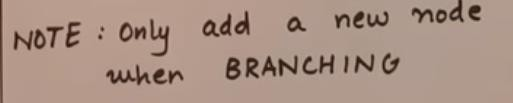 NOTE : Only add a new node
when BRANCHING